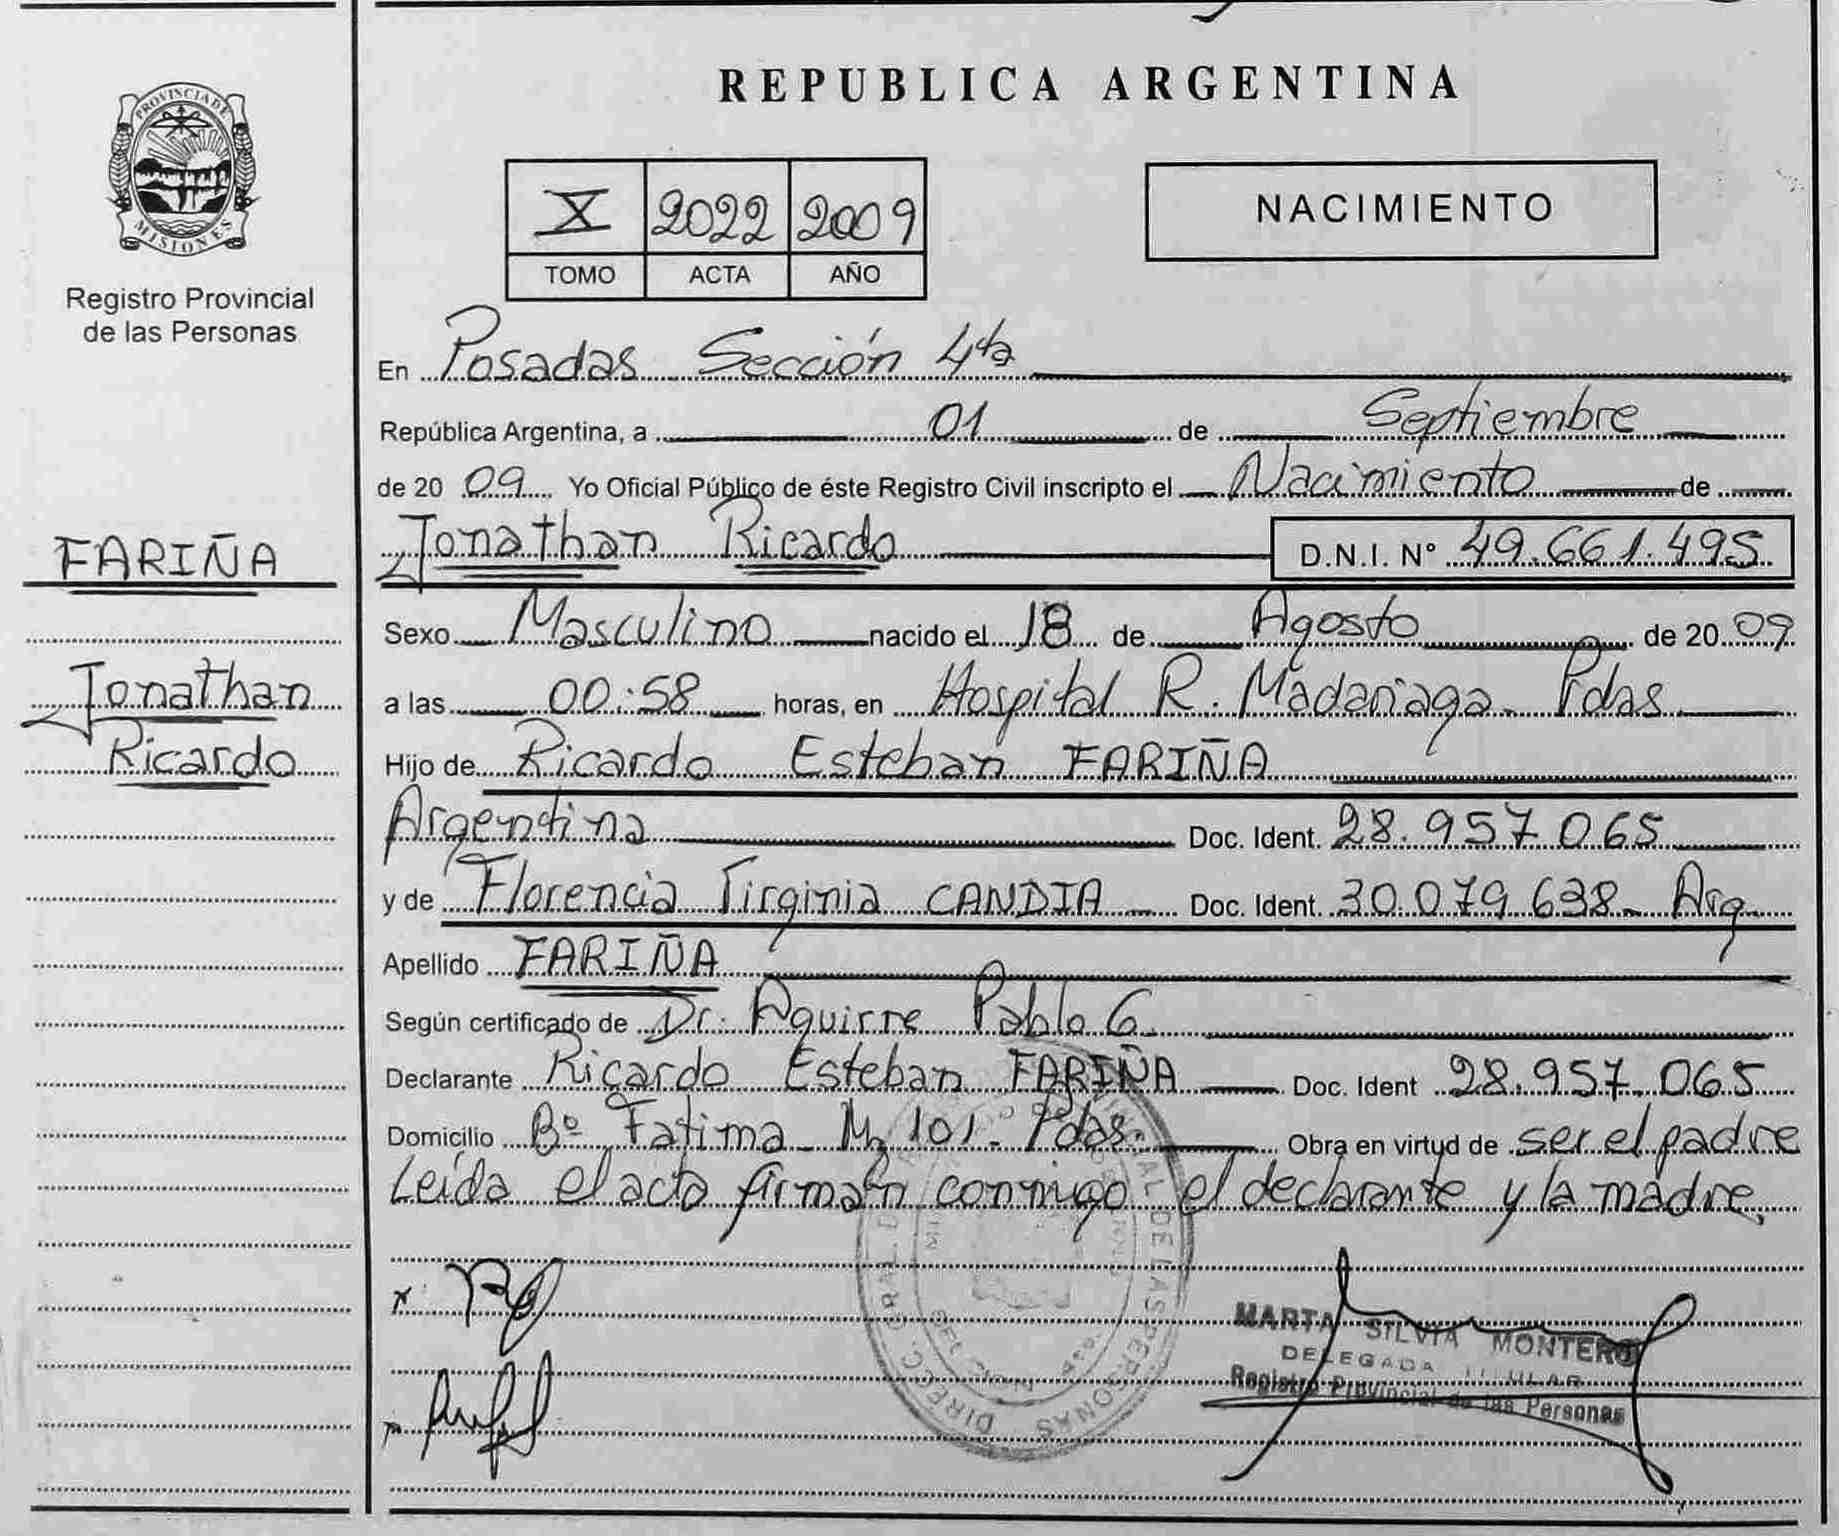 REPUBLICA ARGENTINA
PROVINCIA DE
MISIONES
Registro Provincial
de las Personas
X 2022 2009
TOMO ACTA AÑO
NACIMIENTO
En Posadas Sección 4ta
República Argentina, a 01 de Septiembre
de 20 09 Yo Oficial Público de éste Registro Civil inscripto el Nacimiento de
FARIÑA
Jonathan
Ricardo
Jonathan Ricardo D.N.I. N° 49.661.495
Sexo Masculino nacido el 18 de Agosto de 20 09
a las 00:58 horas, en Hospital R. Madariaga - Pdas.
Hijo de Ricardo Esteban FARIÑA
Argentina Doc. Ident. 28.957.065
y de Florencia Virginia CANDIA - Doc. Ident. 30.079.638 - Arg.
Apellido FARIÑA
Según certificado de Dr. Aguirre Pablo G.
Declarante Ricardo Esteban FARIÑA Doc. Ident 28.957.065
Domicilio Bº Fatima Mz 101 - Pdas. Obra en virtud de ser el padre
Leída el acta firman conmigo el declarante y la madre.
MARTA SILVIA MONTERO
DELEGADA TITULAR
Registro Provincial de las Personas